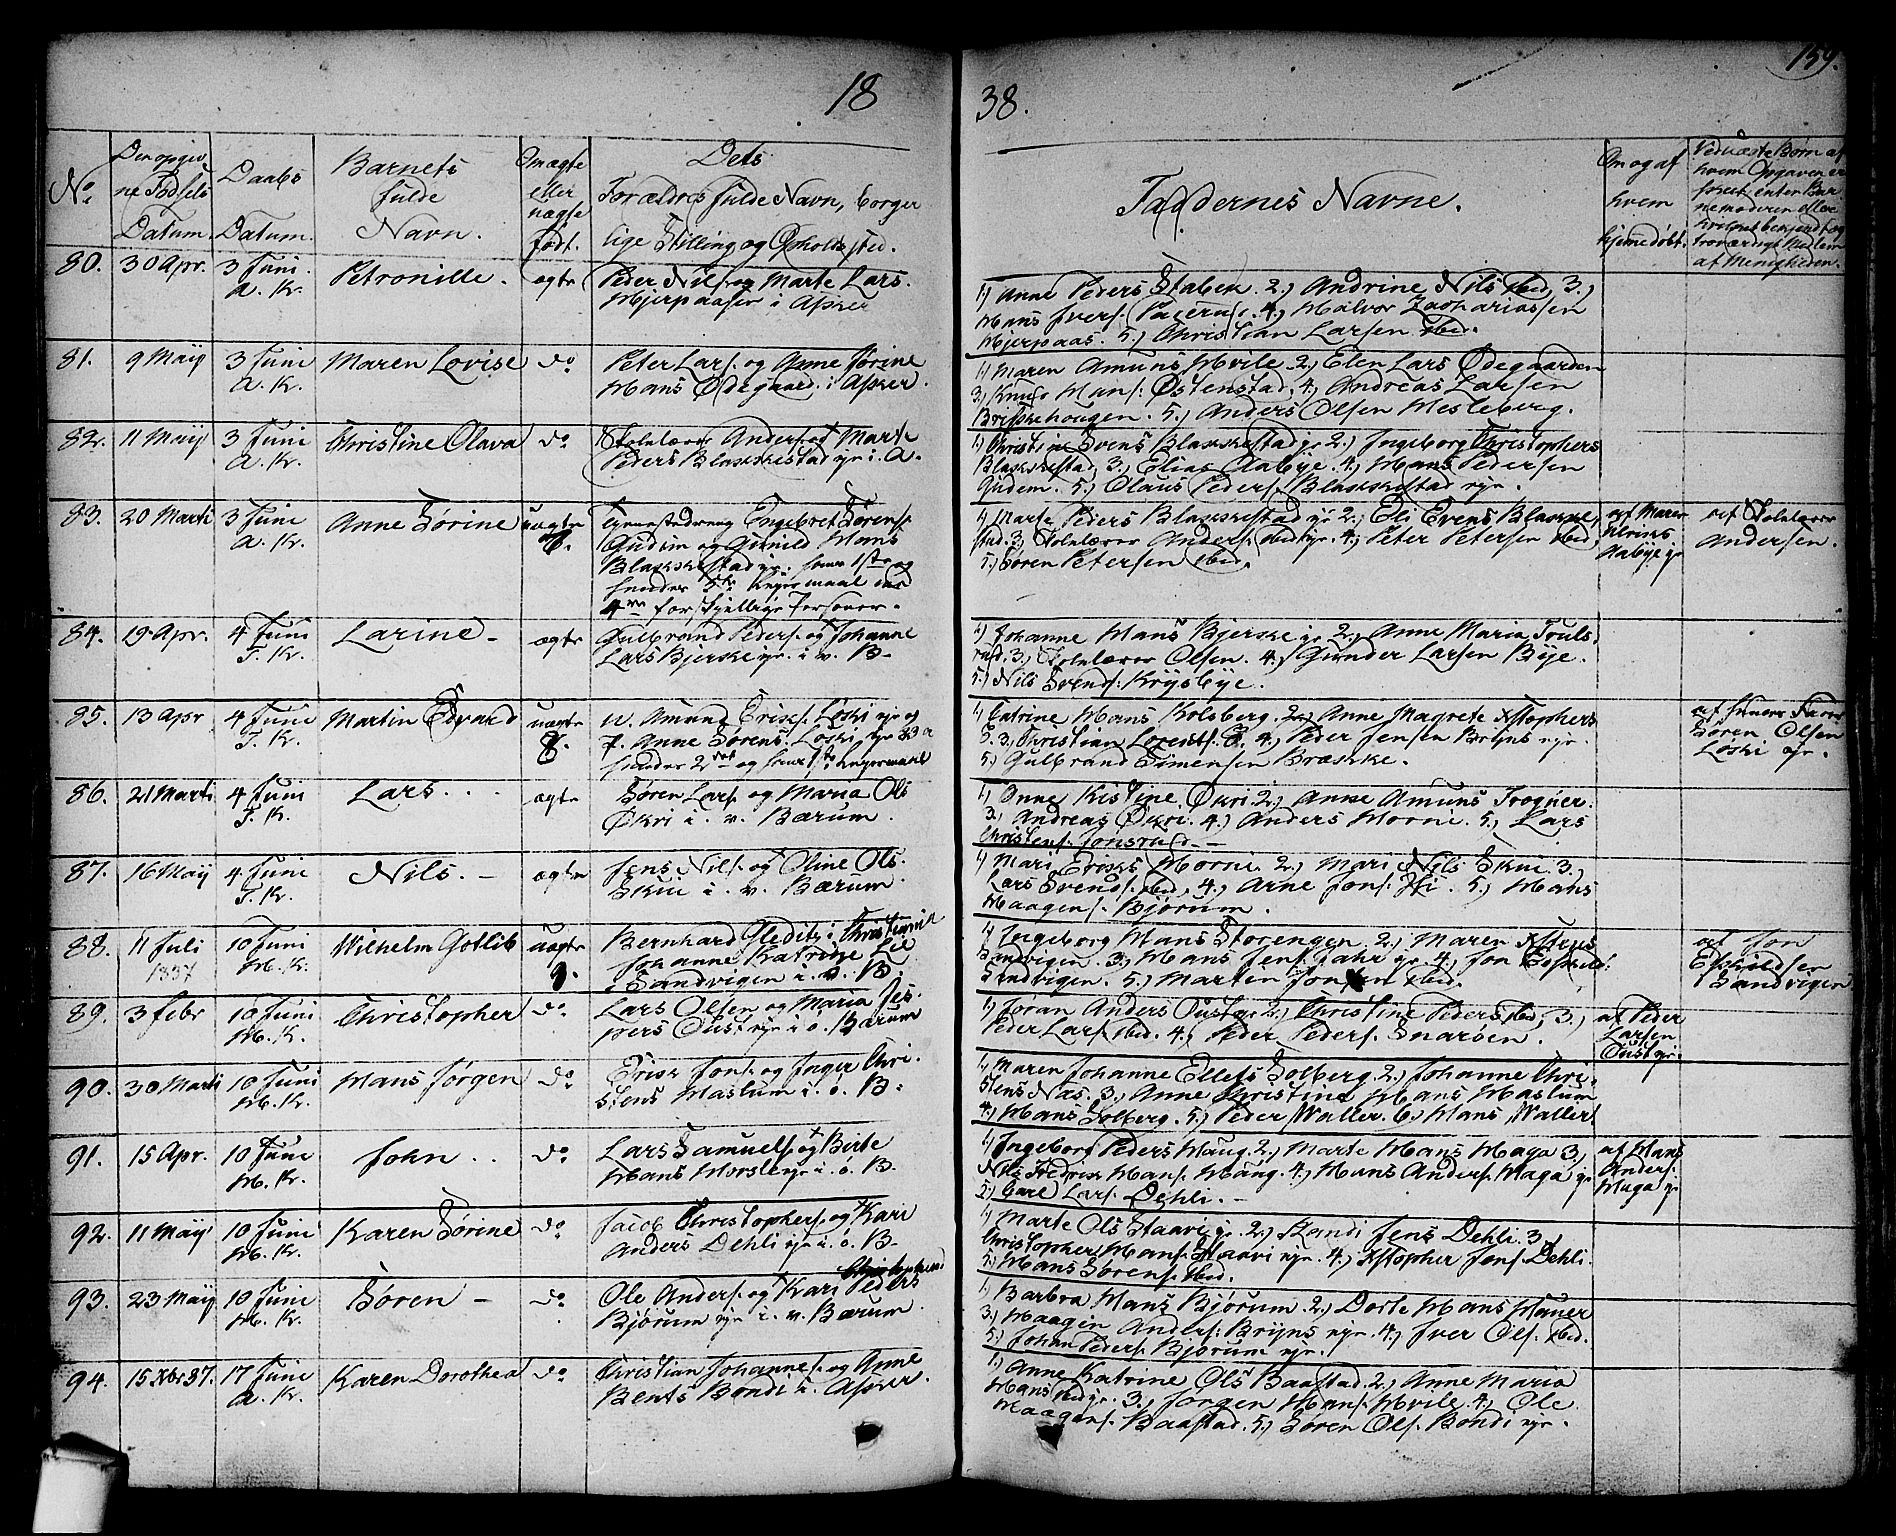 18
38.
159.
No.
Den opgiv-
ne Fødsels
Datum.
Daabs
Datum.
Barnets
fulde
Navn.
Om ægte
eller
uægte
født.
Dets
Forældres fulde Navn, borger
lige Stilling og Opholdssted.
Faddernes Navne.
Om og af
hvem
hjemedøbt.
Ved uægte Børn af
hvem Opgaven er
skeet, enten Bar
nemoderen eller
troværdigt Medlem
af Menigheden.
80. 30 Apr. 3 Juni A. K. Petronille. ægte
Peder Nils. og Marte Lars.
Hjerpaasen i Asker
1, Anne Peders Staben. 2, Andrine Nils ibid, 3,
Hans Ivers. 4, Halvor Zachariassen
Hjerpaas. 5, Christian Larsen ibid.
81. 9 Maij 3 Juni A. K. Maren Lovise do
Peter Lars. og Anne Jørine
Hans Ødegaard. i Asker.
1, Maren Amuns Hvile 2, Elen Lars Ødegaarden
3, Knud Hans. Østenstad. 4, Andreas Larsen
Briskehougen. 5, Anders Olsen Hesleberg.
82. 11 Maij 3 Juni A. K. Christine Olava do
Skolelærer Anders. og Marte
Peders Blakkestad eje i. A.
1, Christine Svens Blakkestad eje 2, Ingeborg Christophers
Blakkestad, 3, Elias Aabye. 4, Hans Pedersen
Gudem. 5, Olaus Peders. Blakkestad eje.
83. 20 Marti 3 Juni A. K. Anne Sørine uægte
Tjenestedreng Engebret Sørens.
Gudim og Gunild Hans
Blakkestad eje: hans 1ste og
hendes 5te Leiermaal med
4re forskjellige Personer.
1, Marte Peders Blakkestad eje 2, Eli Evens Blakke
stad. 3, Skolelærer Anders. ibid eje. 4, Peter Petersen ibid,
5, Søren Petersen ibid.
af Maren
Aabye eje
af Skolelærer
Andersen.
84. 19 Apr. 4 Juni T. K. Larine - ægte
Gulbrand Peders. og Johanne
Lars Bjerke eje. i v. B.
1, Johanne Hans Bjerke eje 2, Anne Maria Touls
rud. 3, Skolelærer Olsen. 4, Gunder Larsen Bye.
5, Nils Svends. Krysbye.
85. 13 Apr 4 Juni T. K. Martin Edvard uægte 8.
u. Amund Eriks. Løski eje og
p. Anne Sørens. Løski eje 33 a
hendes 2det og hans 1ste Leiermaal
1, Catrine Hans Kolsberg. 2, Anne Magrete Xstophers
3, Christian 4, Peder Jensen Bryns eje.
5, Gulbrand Simensen Brække.
af hunes Fader
Søren Olsen
Løski eje.
86. 21 Marti 4 Juni T. K. Lars. ægte
Søren Lars. og Maria Ols
Økri i. v. Bærum.
1, Anne Kistine Økri 2, Anne Amuns Trogner.
3, Andreas Økri. 4, Anders Horni. 5, Lars
Christens. Jonsrud.
87. 16 Maij 4 Juni T. K. Nils. - ægte
Jens Nils. og Oline Ols.
Skui i. v. Bærum.
1, Mari Eriks Horni 2, Mari Nils Skui 3,
Lars Svends. ibid, 4, Arne Jons. 5, Hans
Haagens. Bjørum.
88. 11 Juli 1837 10 Juni H. K. Wilhelm Gotlib uægte 9.
Bernhard Gledits i Christiania
Johanne Katrine Lie
i Sandvigen i. v. B.
1, Ingeborg Hans Storengen. 2, Maren
Sandvigen. 3, Hans Jens. Jahr eje 4, Jon
Sandvigen. 5, Martin Jonsen ibid.
af Jon
Eskildsen
Sandvigen
89. 3 Febr 10 Juni H. K. Christopher do
Lars Olsen og Maria Jes-
pers Oust eje i ø. Bærum
1, Jøran Anders Oust eje. 2, Christine Peders ibid, 3,
Peder Lars ibid. 4, Peder Peders. Snarøen.
af Peder
Larsen
Oust eje.
90. 30 Marti 10 Juni H. K. Hans Jørgen do
Erik Jons. og Inger Chri-
stens Haslum i. ø. B.
1, Maren Johanne Ellefs Solberg. 2, Johanne Chri-
stens Næs. 3, Anne Christine Hans Haslum
4, Hans Solberg. 5, Peder Waller. 6, Hans Waller.
91. 15 Apr. 10 Juni H. K. John. do
Lars Samuels. og Birte
Hans Horsle eje i. ø. B.
1, Ingeborg Peders Haug. 2, Marte Hans Haga 3,
Nils Fredrik Hans. Haug. 4, Hans Anders. Haga eje
5, Carl Lars. Dehli. -
af Hans
Anders.
Haga eje
92. 11 Maij 10 Juni H. K. Karen Sørine do
Jacob Christophers. og Kari
Anders Dehli eje i. ø. B.
1, Marte Ols Staavi eje. 2, Randi Jens Dehli. 3,
Christopher Hans. Staavi eje. 4, Xstopher Jens. Dehli.
5, Hans Sørens. ibid.
93. 23 Maij 10 Juni H. K. Søren - do
Ole Anders. og Kari Peders
Bjørum eje i. v. Bærum.
1, Barbra Hans Bjørum. 2, Dorte Hans Hauer
3, Haagen Anders. Bryns eje. 4, Iver Ols. ibid.
5, Johan Peders. Bjørum eje.
94. 15 Xbr 37. 17 Juni A. K. Karen Dorothea do
Christian Johannes. og Anne
Bents Bondi i. Asker.
1, Anne Katrine Ols Baastad. 2, Anne Maria
Hans ibid eje. 3, Jørgen Hans. Hvile. 4, Ole
Haagens. Baastad. 5, Søren Ols. Bondi eje.